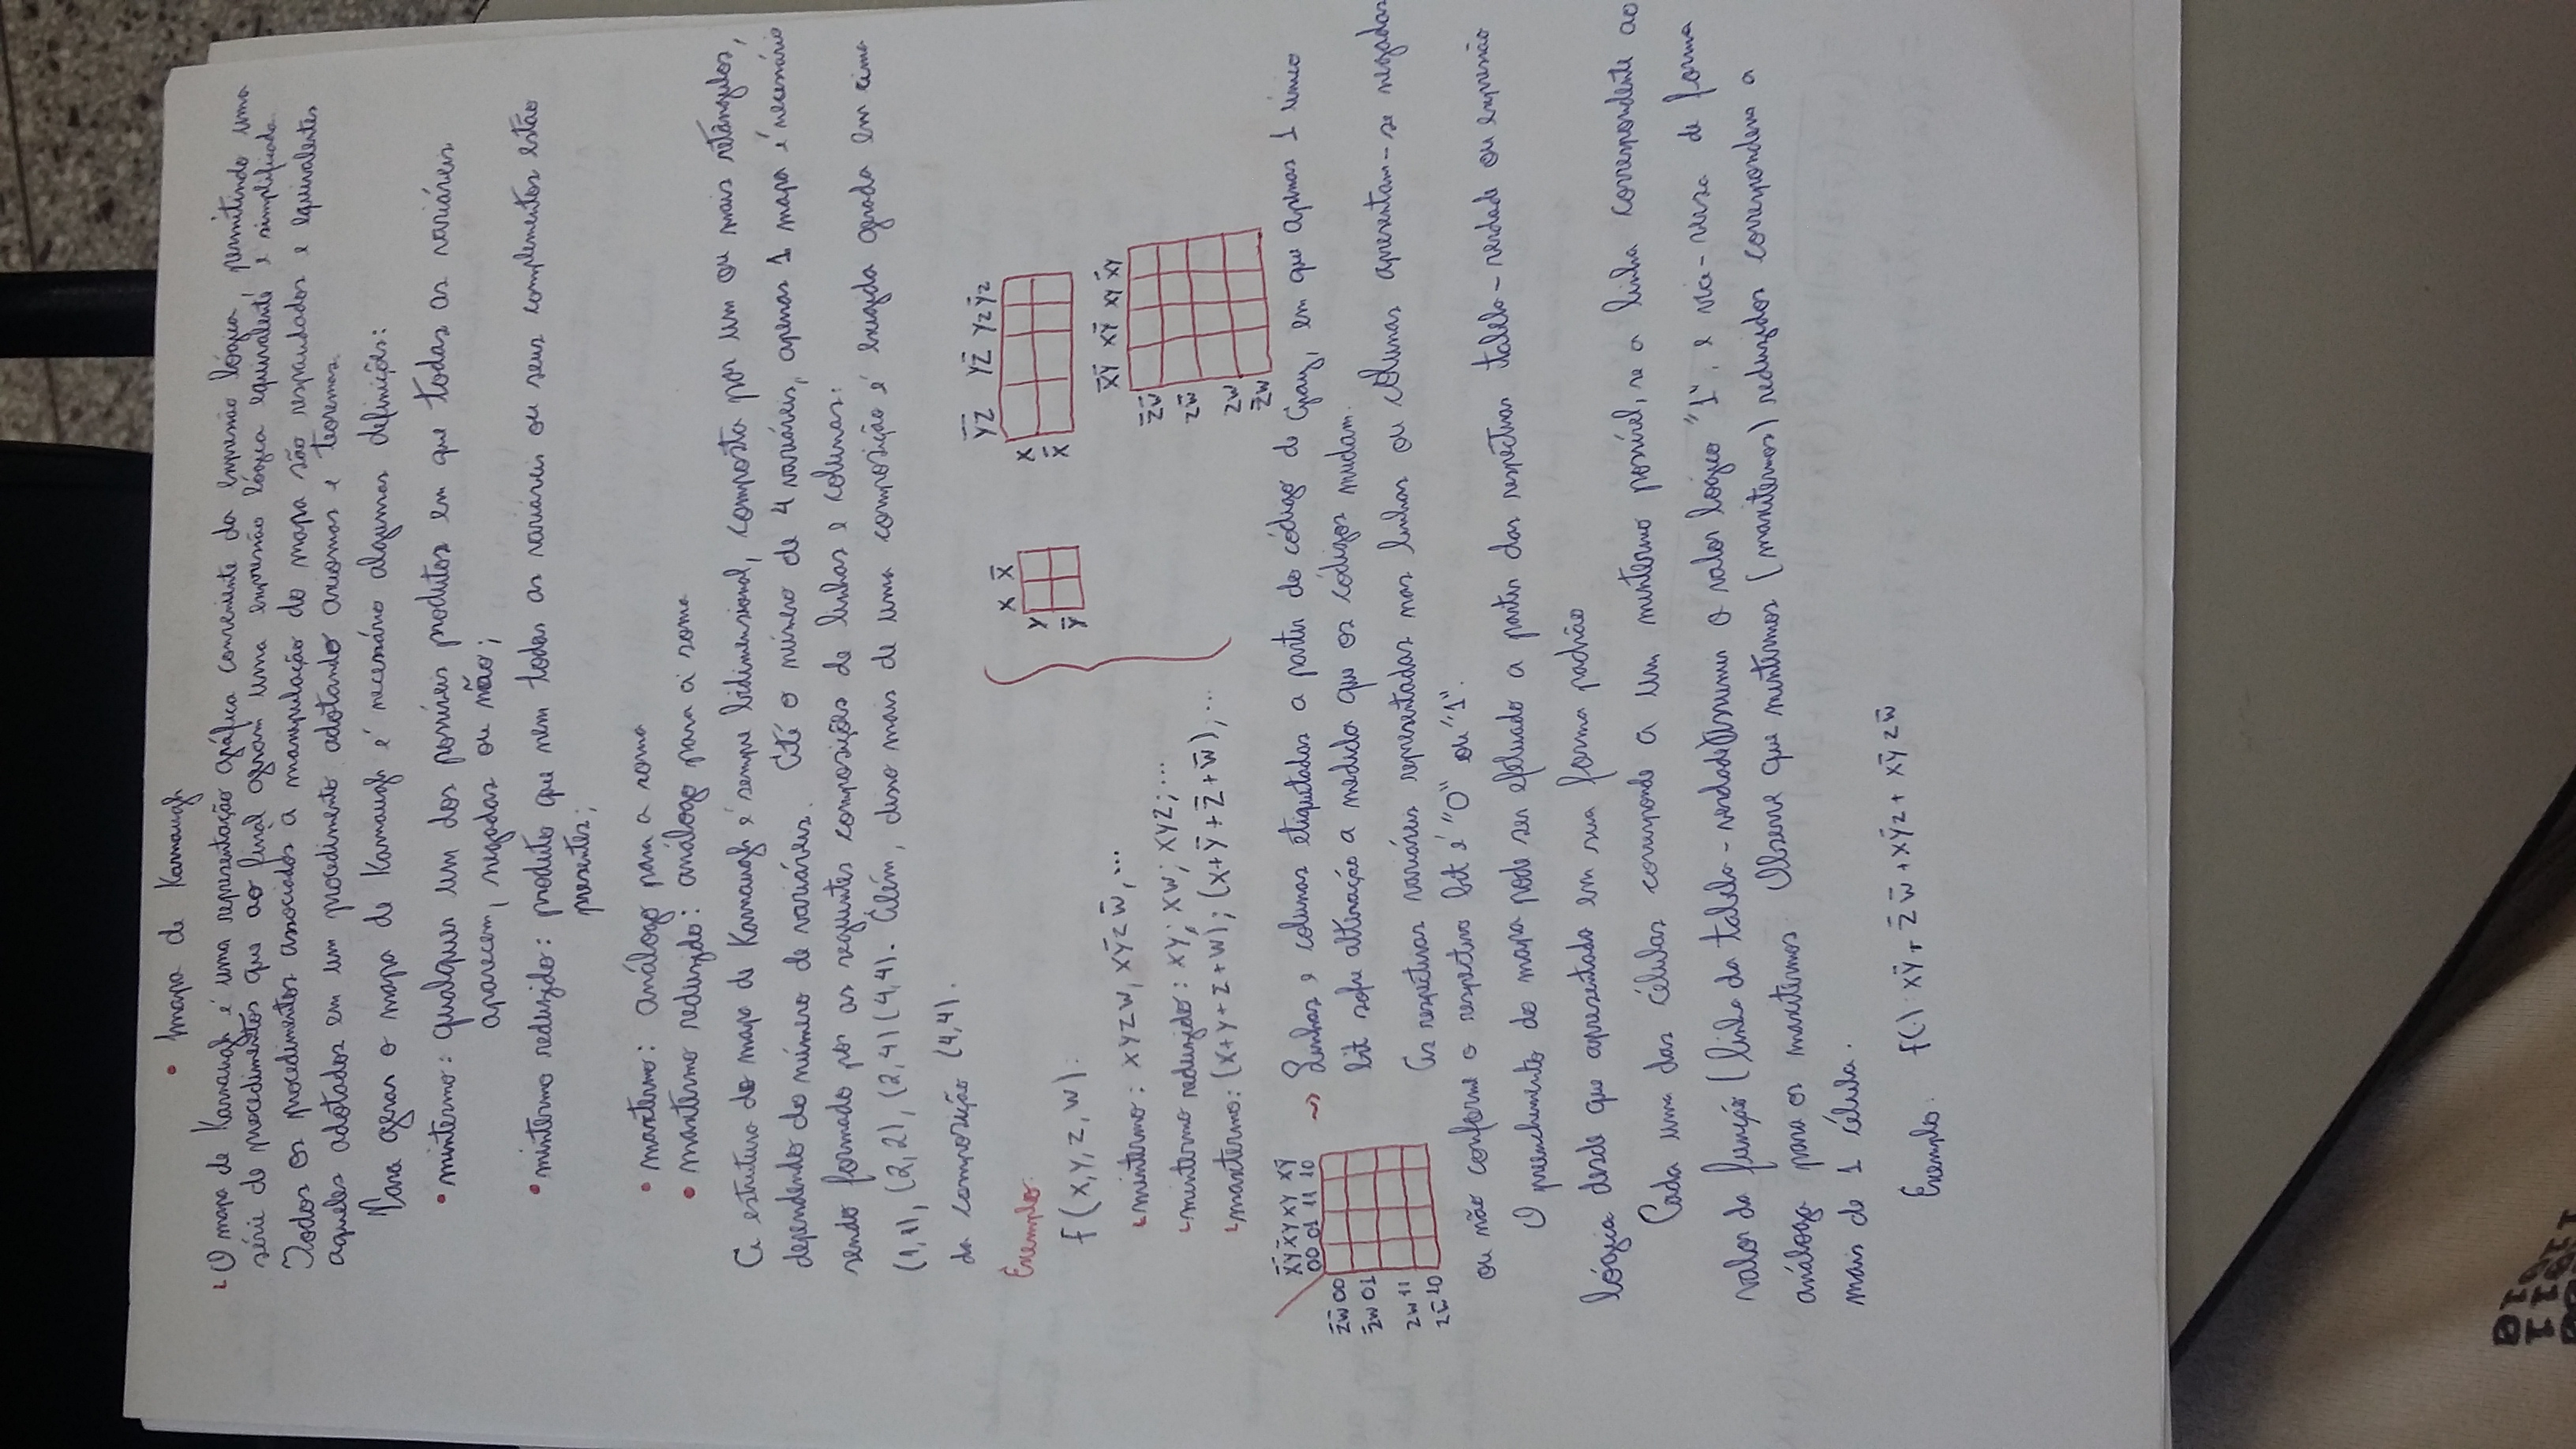 • mapa de Karnaugh
O mapa de Karnaugh é uma representação gráfica conveniente da expressão lógica, permitindo uma
série de procedimentos que ao final geram uma expressão lógica equivalente e simplificada.
Todos os procedimentos associados à manipulação do mapa são respaudados e equivalentes
aqueles adotados em um procedimento adotando axiomas e teoremas.
Para gerar o mapa de Karnaugh é necessário algumas definições:
• mintermo: qualquer um dos possíveis produtos em que todas as variáveis
aparecem, negadas ou não;
• mintermo reduzido: produto que nem todas as variáveis ou seus complementos estão
presentes;
• maxtermo: análogo para a soma
• maxtermo reduzido: análogo para a soma
A estrutura do mapa de Karnaugh é sempre bidimensional, composta por um ou mais retângulos,
dependendo do número de variáveis. Até o número de 4 variáveis, apenas 1 mapa é necessário
sendo formado por as seguintes composições de linhas e colunas:
(1,1), (2,2), (2,4) (4,4). Além, disso mais de uma composição é exigida gerada em cima
da composição (4,4).
Exemplo:
f(x,y,z,w):
mintermo: xyzw, xy̅zw̅, ...
mintermo reduzido: xy; xw; xyz; ...
maxtermo: (x+y+z+w); (x+y̅+z̅+w̅), ...
x x̅
y
y̅
y̅z̅ yz̅ yz y̅z
x
x̅
x̅y̅ xy̅ xy x̅y
z̅w̅
zw̅
zw
z̅w
x̅y̅ x̅y xy xy̅
00 01 11 10
z̅w̅ 00
z̅w 01
zw 11
zw̅ 10
→ Linhas e colunas etiquetadas a partir do código de Gray, em que apenas 1 único
bit sofre alteração a medida que os códigos mudam.
As respectivas variáveis representadas nas linhas ou colunas apresentam-se negadas
ou não conforme o respectivo bit é "0" ou "1".
O preenchimento do mapa pode ser efetuado a partir das respectivas tabela-verdade ou expressão
lógica desde que apresentada em sua forma padrão
Cada uma das células corresponde a um mintermo possível, se a linha correspondente ao
valor da função (linha da tabela-verdade) assumir o valor logico "1", e vice-versa de forma
análoga para os maxitermos. Observe que mintermos (maxitermos) reduzidos correspondem a
mais de 1 célula.
Exemplo: f(.): xy̅ + z̅w̅ + xy̅z + xy̅zw̅